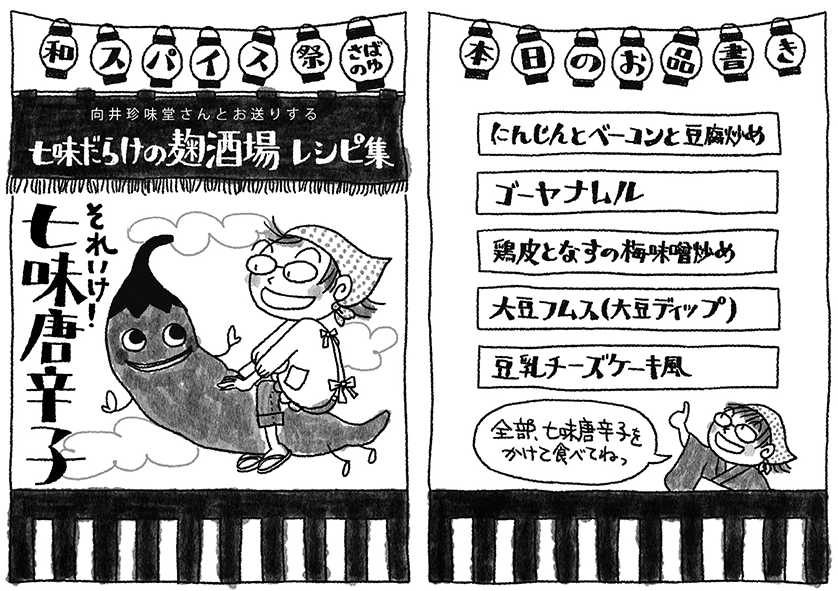 和スパイス祭さばのゆ
向井珍味堂さんとお送りする
七味だらけの麹酒場 レシピ集
それいけ！
七味唐辛子
本日のお品書き
にんじんとベーコンと豆腐炒め
ゴーヤナムル
鶏皮となすの梅味噌炒め
大豆フムス(大豆ディップ)
豆乳チーズケーキ風
全部、七味唐辛子を
かけて食べてねっ